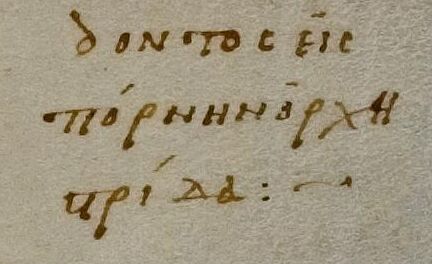 δοντος εἰς
πόρνην ὀρχη
στρίδα : ~